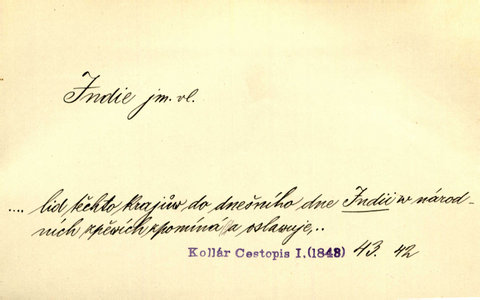 Indie jm. vl.
.... lid těchto krajůw do dnešního dne Indii w národ-
ních zpěwích zpomíná a oslawuje,..
Kollár Cestopis I. (1843) 43. 42